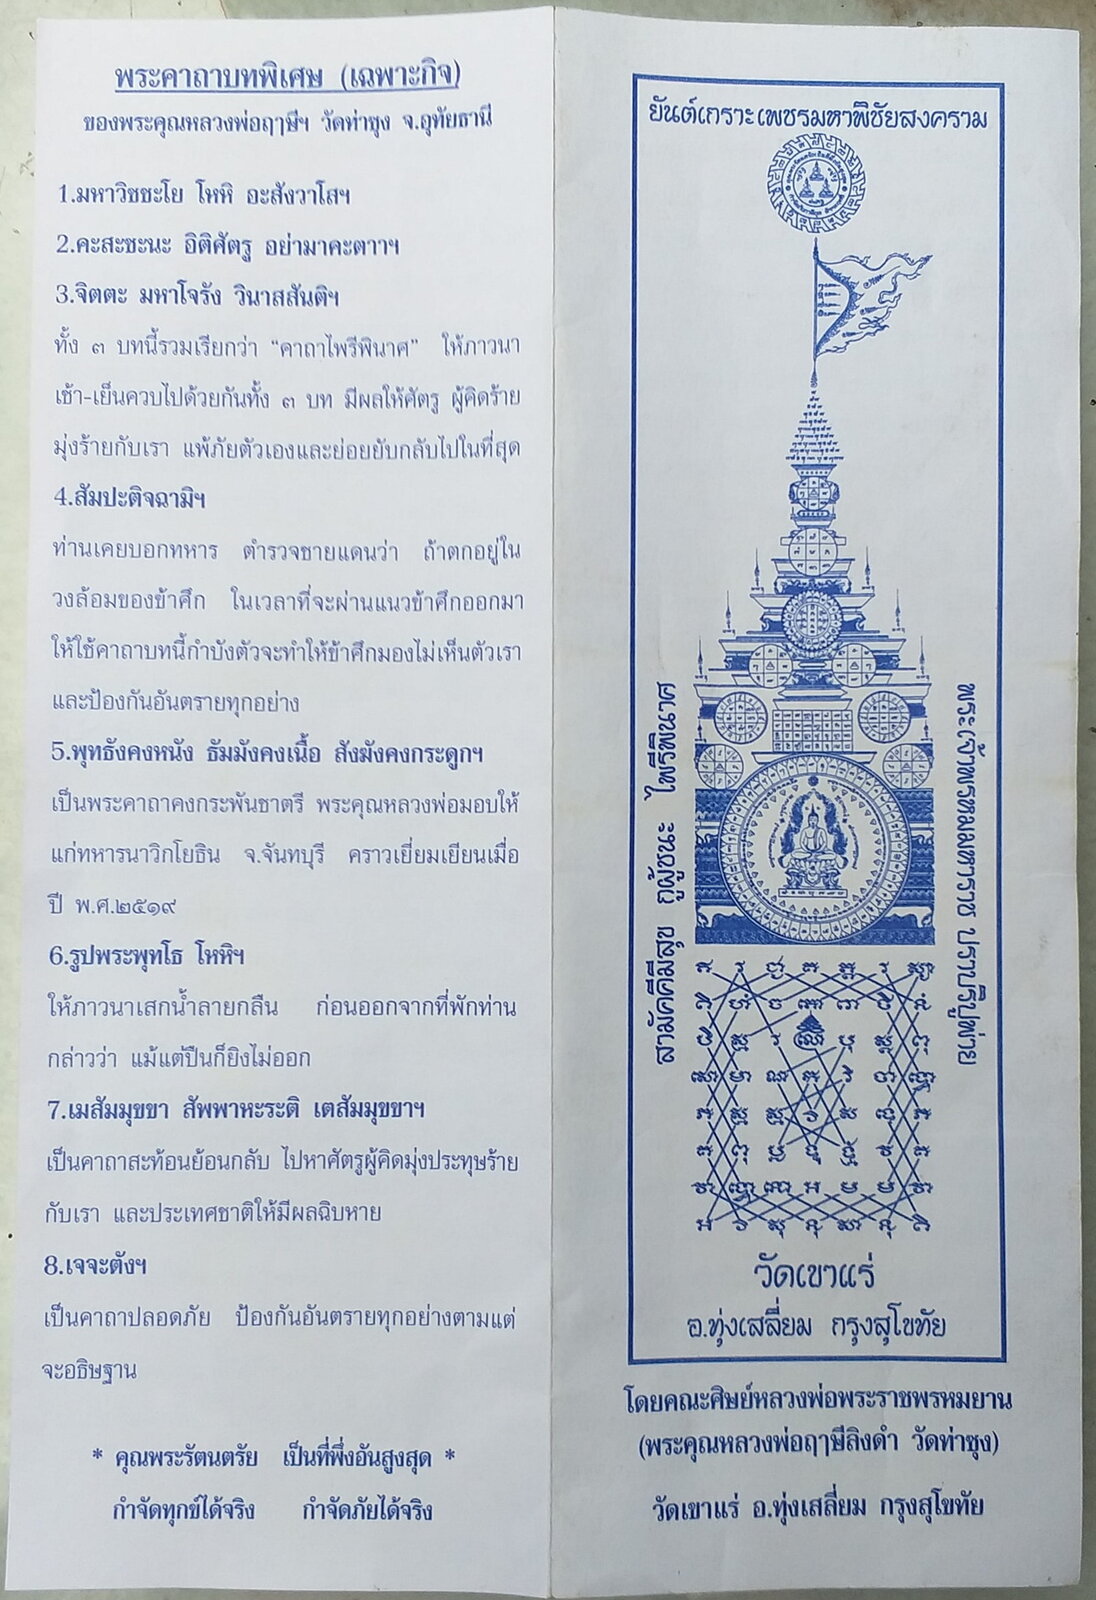 พระคาถาบทพิเศษ (เฉพาะกิจ)
ของพระคุณหลวงพ่อฤๅษีฯ วัดท่าซุง จ.อุทัยธานี
1.มหาวิชชะโย โหหิ อะสังวาโสฯ
2.คะสะชะนะ อิติศัตรู อย่ามาคะตาาฯ
3.จิตตะ มหาโจรัง วินาสสันติฯ
ทั้ง ๓ บทนี้รวมเรียกว่า “คาถาไพรีพินาศ” ให้ภาวนา
เช้า-เย็นควบไปด้วยกันทั้ง ๓ บท มีผลให้ศัตรู ผู้คิดร้าย
มุ่งร้ายกับเรา แพ้ภัยตัวเองและย่อยยับกลับไปในที่สุด
4.สัมปะติจฉามิฯ
ท่านเคยบอกทหาร ตำรวจชายแดนว่า ถ้าตกอยู่ใน
วงล้อมของข้าศึก ในเวลาที่จะผ่านแนวข้าศึกออกมา
ให้ใช้คาถาบทนี้กำบังตัวจะทำให้ข้าศึกมองไม่เห็นตัวเรา
และป้องกันอันตรายทุกอย่าง
5.พุทธังคงหนัง ธัมมังคงเนื้อ สังมังคงกระดูกฯ
เป็นพระคาถาคงกระพันชาตรี พระคุณหลวงพ่อมอบให้
แก่ทหารนาวิกโยธิน จ.จันทบุรี คราวเยี่ยมเยียนเมื่อ
ปี พ.ศ.๒๕๑๙
6.รูปพระพุทโธ โหหิฯ
ให้ภาวนาเสกน้ำลายกลืน ก่อนออกจากที่พักท่าน
กล่าวว่า แม้แต่ปืนก็ยิงไม่ออก
7.เมสัมมุขขา สัพพาหะระติ เตสัมมุขขาฯ
เป็นคาถาสะท้อนย้อนกลับ ไปหาศัตรูผู้คิดมุ่งประทุษร้าย
กับเรา และประเทศชาติให้มีผลฉิบหาย
8.เจจะตังฯ
เป็นคาถาปลอดภัย ป้องกันอันตรายทุกอย่างตามแต่
จะอธิษฐาน
* คุณพระรัตนตรัย เป็นที่พึ่งอันสูงสุด *
กำจัดทุกข์ได้จริง กำจัดภัยได้จริง
ยันต์เกราะเพชรมหาพิชัยสงคราม
สามัคคีมีสุข กูผู้ชนะ ไพรีพินาศ
พระเจ้าพรหมมหาราช ปราบริปูพ่าย
วัดเขาแร่
อ.ทุ่งเสลี่ยม กรุงสุโขทัย
โดยคณะศิษย์หลวงพ่อพระราชพรหมยาน
(พระคุณหลวงพ่อฤๅษีลิงดำ วัดท่าซุง)
วัดเขาแร่ อ.ทุ่งเสลี่ยม กรุงสุโขทัย